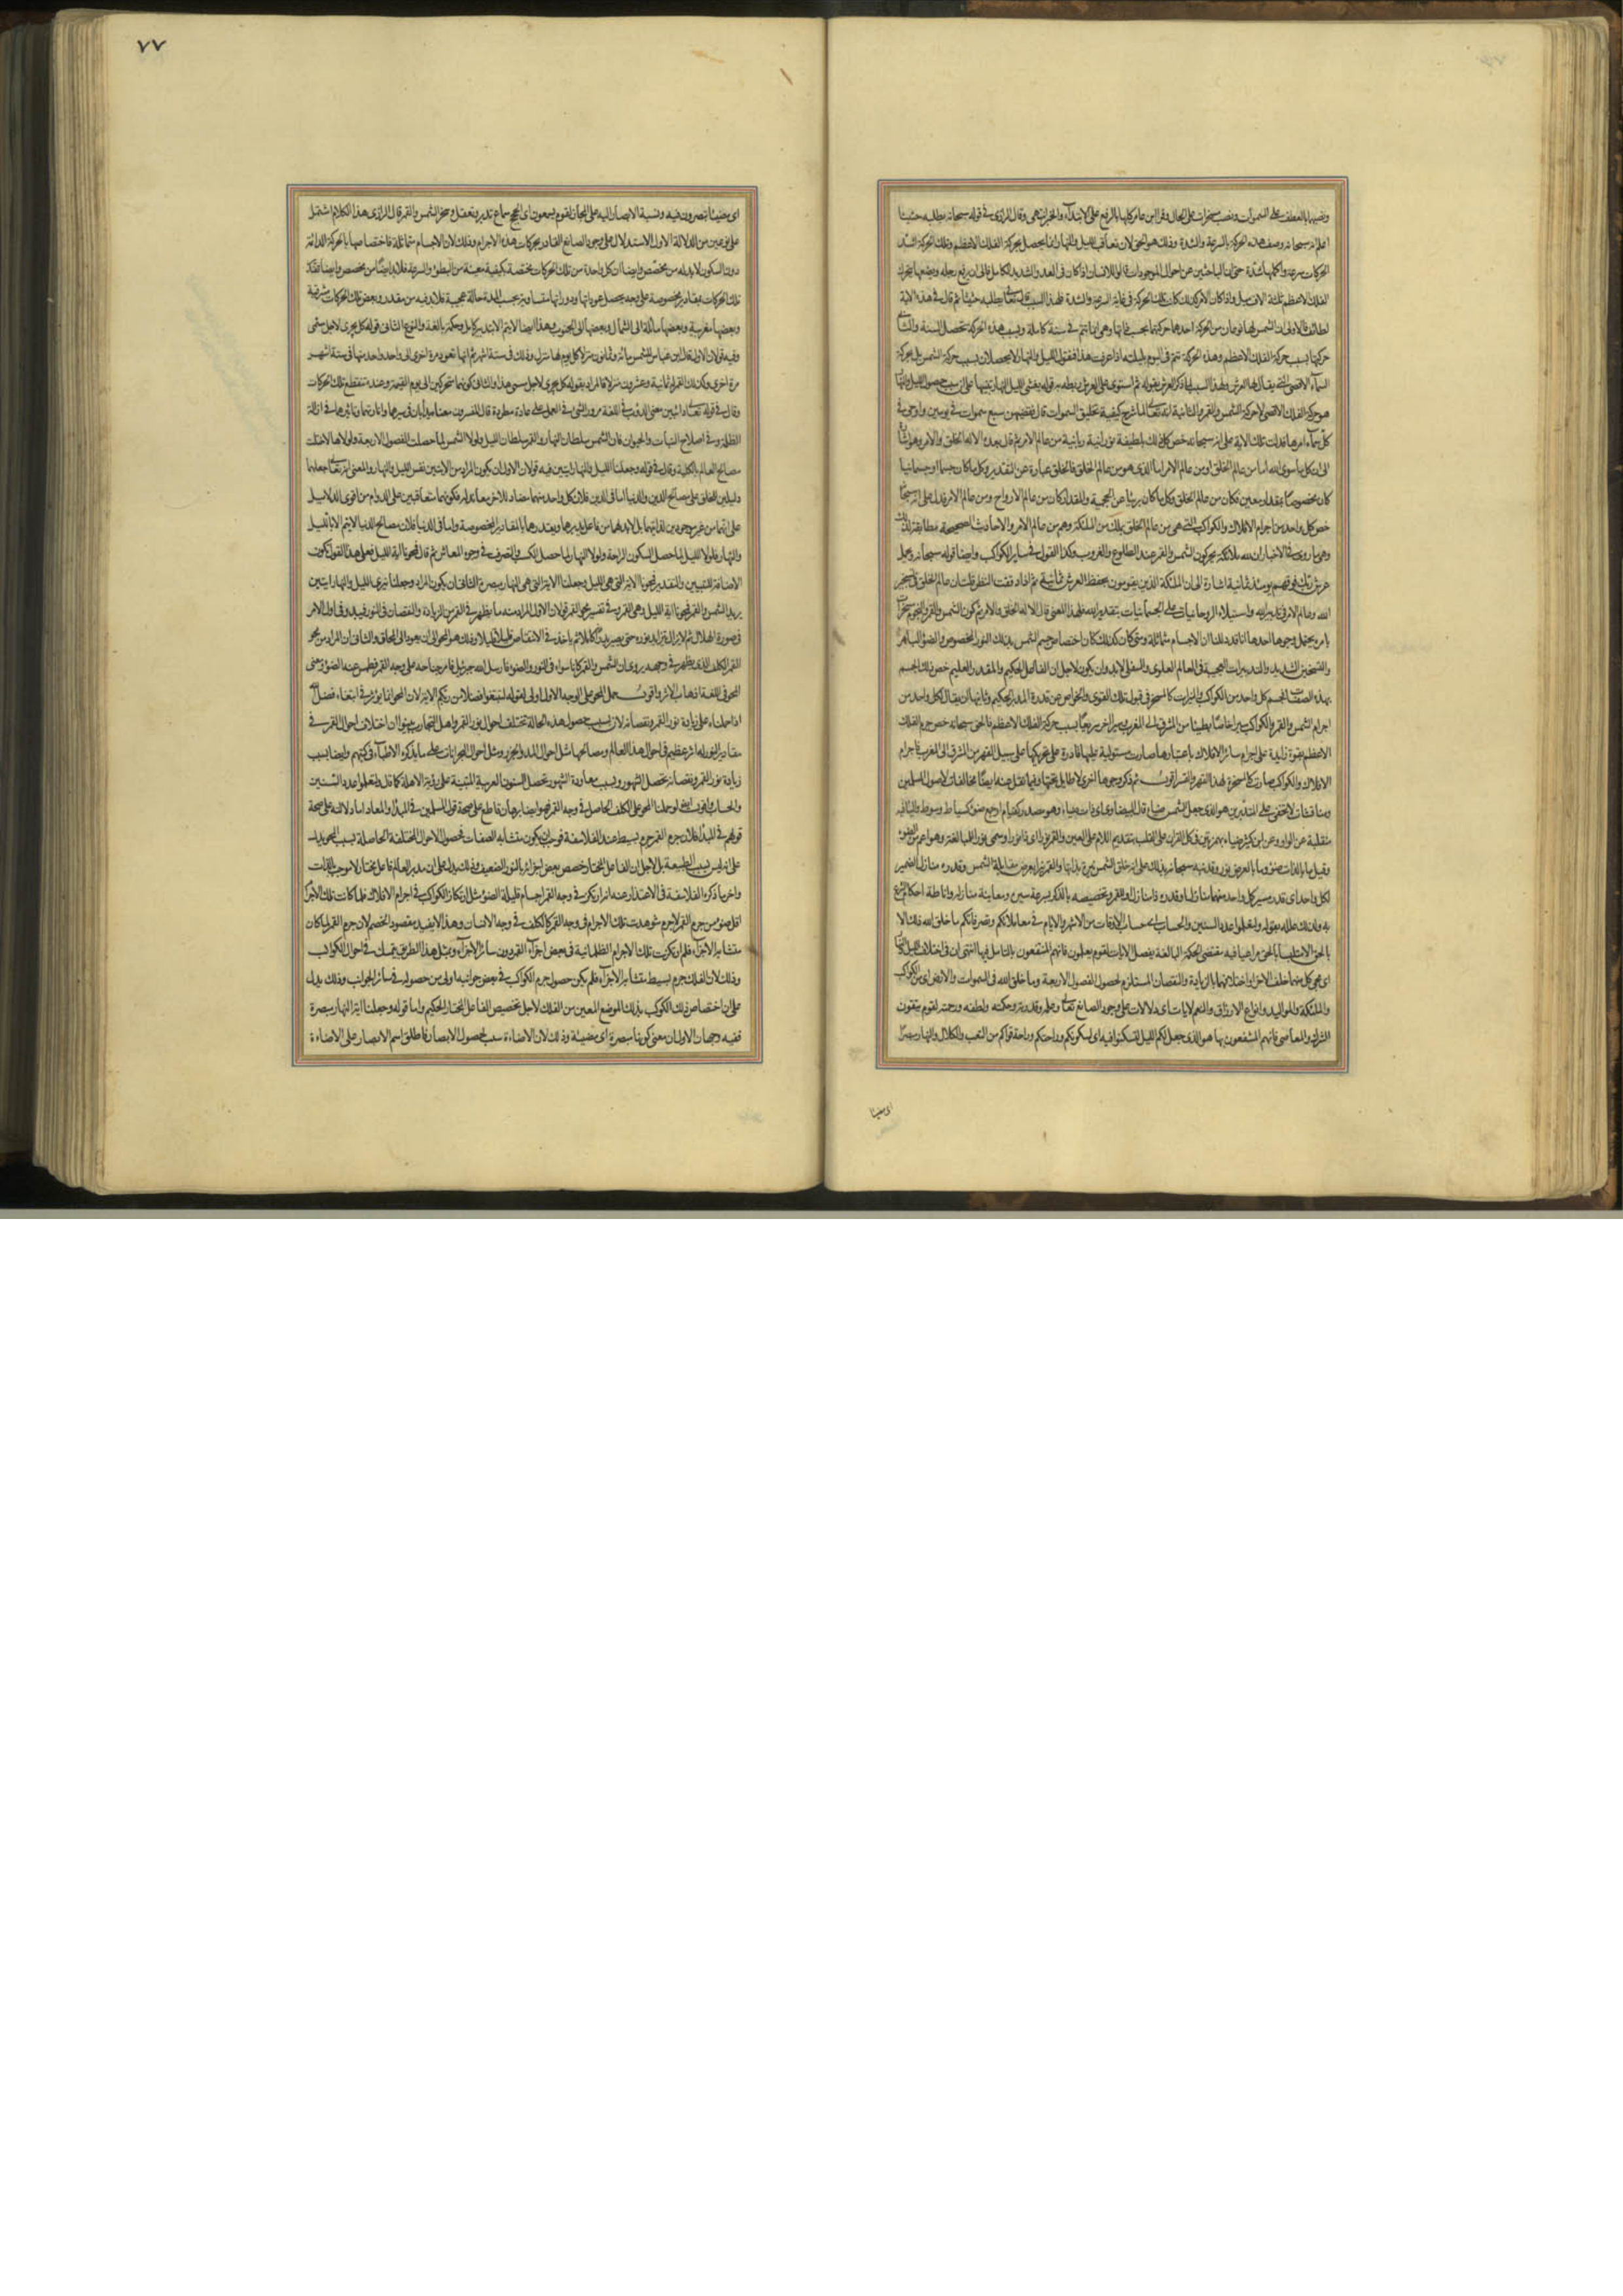 ونصبها بالعطف على السموات ونصب مسخرات على الحال وقرأ ابن عامر كلها بالرفع على الابتداء والخبر انتهى وقال الرازي في قوله سبحانه يطلبه حثيثا
اعلم انه سبحانه وصف هذه الحركة بالسرعة والشدة وذلك هو الحق لان تعاقب الليل والنهار انما يحصل بحركة الفلك الاعظم وتلك الحركة اشد
الحركات سرعة واكملها شدة حتى ان الباحثين عن احوال الموجودات قالوا الانسان اذا كان في العدو الشديد الكامل فالى ان يرفع رجله ويضعها يتحرك
الفلك الاعظم ثلثة الاف ميل واذا كان الامر كذلك كانت تلك الحركة في غاية السرعة والشدة فلهذا السبب قال تعالى يطلبه حثيثا ثم قال في هذه الاية
لطائف فالاولى ان الشمس لها نوعان من الحركة احدها حركتها بحسب ذاتها وهي انما تتم في سنة كاملة وبسبب هذه الحركة تحصل السنة والثاني
حركتها بسبب حركة الفلك الاعظم وهذه الحركة تتم في اليوم بليلته اذا عرفت هذا فنقول الليل والنهار لا يحصلان بسبب حركة الشمس بل بحركة
السماء الاقصى التي يقال لها العرش فلهذا السبب لما ذكر العرش بقوله ثم استوى على العرش ربطه به قوله يغشى الليل النهار تنبيها على ان سبب حصول الليل والنهار
هو حركة الفلك الاقصى لا حركة الشمس والقمر والثانية انه تعالى لما شرح كيفية تخليق السموات قال فقضيهن سبع سموات في يومين واوحى في
كل سماء امرها فدلت تلك الاية على انه سبحانه خص كل فلك بلطيفة نورانية ربانية من عالم الامر ثم قال بعده الا له الخلق والامر وهو اشارة
الى ان كل ما سوى الله اما من عالم الخلق او من عالم الامر اما الذي هو من عالم الخلق فالخلق عبارة عن التقدير وكل ما كان جسما او جسمانيا
كان مخصوصا بمقدار معين فكان من عالم الخلق وكل ما كان بريئا عن الحجمية والمقدار كان من عالم الارواح ومن عالم الامر فدل على انه سبحانه
خص كل واحد من اجرام الافلاك والكواكب التي هي من عالم الخلق بملك من الملئكة وهم من عالم الامر والاحاديث الصحيحة مطابقة لذلك
وهي ما روي في الاخبار ان لله ملائكة يحركون الشمس والقمر عند الطلوع والغروب وكذا القول في ساير الكواكب وايضا قوله سبحانه ويحمل
عرش ربك فوقهم يومئذ ثمانية اشارة الى ان الملئكة الذين يقومون بحفظ العرش ثمانية ثم اذا دققت النظر قلت ان عالم الخلق في تسخير
الله وعالم الامر في تدبير الله واستيلاء الروحانيات على الجسمانيات بتقدير الله فلهذا المعنى قال الا له الخلق والامر ثم كون الشمس والقمر والنجوم مسخرات
بامره يحتمل وجوها احدها انا قد دللنا ان الاجسام متماثلة ومتى كان كذلك كان اختصاص جسم الشمس بذلك النور المخصوص والضوء الباهر
والتسخين الشديد والتدبيرات العجيبة في العالم العلوي والسفلي لابد وان يكون لاجل ان الفاعل الحكيم والمقدر العليم خص ذلك الجسم
بهذه الصفات فجسم كل واحد من الكواكب والنيرات كالمسخر في قبول تلك القوى والخواص عن قدرة المدبر الحكيم وثانيها ان يقال ان لكل واحد من
اجرام الشمس والقمر والكواكب سيرا خاصا بطيئا من المغرب الى المشرق وسيرا اخر سريعا بسبب حركة الفلك الاعظم فالحق سبحانه خص جرم الفلك
الاعظم بقوة زايدة على اجرام ساير الافلاك باعتبارها صارت مستولية عليها قادرة على تحريكها على سبيل القهر من المشرق الى المغرب فاجرام
الافلاك والكواكب صارت كالمسخرة لهذا القهر والقسر اقول ثم ذكر وجوها اخرى لا طايل تحتها وفيما نقل عنه ايضا مخالفات لاصول المسلمين
ومناقشات لا تخفى على المتدبرين هو الذي جعل الشمس ضياء قال البيضاوي اي ذات ضياء وهو مصدر كقيام او جمع ضوء كسياط وسوط والياء فيه
منقلبة عن الواو وعن ابن كثير ضئاء بهمزتين في كل القران على القلب بتقديم اللام على العين والقمر نورا اي ذا نور او سمي نورا للمبالغة وهو اعم من الضوء
وقيل ما بالذات ضوء وما بالعرض نور وقد نبه سبحانه بذلك على انه خلق الشمس نيرة بذاتها والقمر نيرا بعرض مقابلة الشمس وقدره منازل الضمير
لكل واحد اي قدر مسير كل واحد منهما منازل او قدره ذا منازل او للقمر وتخصيصه بالذكر لسرعة سيره ومعاينة منازله واناطة احكام الشرع
به ولذلك علله بقوله ولتعلموا عدد السنين والحساب اي حساب الاوقات من الاشهر والايام في معاملاتكم وتصرفاتكم ما خلق الله ذلك الا
بالحق الا متلبسا بالحق مراعيا فيه مقتضى الحكمة البالغة يفصل الايات لقوم يعلمون فانهم المنتفعون بالتامل فيها انتهى ان في اختلاف الليل والنهار
اي مجيء كل منهما خلف الاخر او اختلافهما بالزيادة والنقصان المستلزم لحصول الفصول الاربعة وما خلق الله في السموات والارض اي من الكواكب
والملئكة والمواليد وانواع الارزاق والنعم لايات اي دلالات على وجود الصانع تعالى وعلمه وقدرته وحكمته ولطفه ورحمته لقوم يتقون
الشرك والمعاصي فانهم المنتفعون بها هو الذي جعل لكم الليل لتسكنوا فيه اي لسكونكم وراحتكم وراحة قواكم من التعب والكلال والنهار مبصرا
اي مضيئا
٧٧
اي مضيئا تبصرون فيه ونسبة الابصار اليه على المجاز لقوم يسمعون اي الحجج سماع تدبر وتعقل وسخر الشمس والقمر قال الرازي هذا الكلام اشتمل
على نوعين من الدلالة الاول الاستدلال على وجود الصانع القادر بحركات هذه الاجرام وذلك لان الاجسام متماثلة فاختصاصها بالحركة الدائمة
دون السكون لابد له من مخصص وايضا ان كل واحدة من تلك الحركات مختصة بكيفية معينة من البطؤ والسرعة فلابد ايضا من مخصص وايضا فتقدر
تلك الحركات بمقادير مخصوصة على وجه يحصل عوداتها ودوراتها متساوية بحسب المدة حالة عجيبة فلابد فيه من مقدر وبعض تلك الحركات مشرقية
وبعضها مغربية وبعضها مائلة الى الشمال وبعضها الى الجنوب وهذا ايضا لا يتم الا بتدبير كامل وحكمة بالغة والنوع الثاني قوله كل يجرى لاجل مسمى
وفيه قولان الاول قال ابن عباس للشمس مائة وثمانون منزلا كل يوم لها منزل وذلك في ستة اشهر ثم انها تعود مرة اخرى الى واحد واحد منها في ستة اشهر
مرة اخرى وكذلك القمر له ثمانية وعشرون منزلا فالمراد بقوله كل يجري لاجل مسمى هذا والثاني كونهما متحركين الى يوم القيمة وعنده تنقطع تلك الحركات
وقال في قوله تعالى دائبين معنى الدؤب في اللغة مرور الشيء في العمل على عادة مطردة قال المفسرون معناه يدأبان في سيرهما وانارتهما وتاثيرهما في ازالة
الظلمة وفي اصلاح النبات والحيوان فان الشمس سلطان النهار والقمر سلطان الليل ولولا الشمس لما حصلت الفصول الاربعة ولولاها لاختلت
مصالح العالم بالكلية وقال في قوله وجعلنا الليل والنهار ايتين فيه قولان الاول ان يكون المراد من الايتين نفس الليل والنهار والمعنى انه تعالى جعلهما
دليلين للخلق على مصالح الدين والدنيا اما في الدين فلان كل واحد منهما مضاد للاخر مغاير له فكونهما متعاقبين على الدوام من اقوى الدلايل
على انهما من غير موجودين لذاتيهما بل لابد لهما من فاعل يدبرهما ويقدرهما بالمقادير المخصوصة واما في الدنيا فلان مصالح الدنيا لا يتم الا بالليل
والنهار فلولا الليل لما حصل السكون الراحة ولولا النهار لما حصل الكسب والتصرف في وجوه المعاش ثم قال فمحونا اية الليل فعلى هذا القول تكون
الاضافة للتبيين والتقدير فمحونا الاية التي هي الليل وجعلنا الاية التي هي النهار مبصرة الثاني ان يكون المراد وجعلنا نيري الليل والنهار ايتين
يريد الشمس والقمر فمحونا اية الليل وهي القمر وفي تفسير محو القمر قولان الاول المراد منه ما يظهر في القمر من الزيادة والنقصان في النور فيبدو في اول الامر
في صورة الهلال ثم لا يزال يتزايد نوره حتى يصير بدرا كاملا ثم ياخذ في الانتقاص قليلا قليلا وذلك هو المحو الى ان يعود الى المحاق والثاني ان المراد من محو
القمر الكلف الذي يظهر في وجهه يروى ان الشمس والقمر كانا سواء في النور والضوء فارسل الله جبرئيل فامر جناحه على وجه القمر فطمس عنه الضوء ومعنى
المحو في اللغة اذهاب الاثر واقول حمل المحو على الوجه الاول اولى لقوله لتبتغوا فضلا من ربكم الاية لان المحو انما يؤثر في ابتغاء فضل الله
اذا حملناه على زيادة نور القمر ونقصانه لان بسبب حصول هذه الحالة تختلف احوال نور القمر واهل التجارب بينوا ان اختلاف احوال القمر في
مقادير النور له اثر عظيم في احوال هذا العالم ومصالحها مثل احوال المد والجزر ومثل احوال البحرانات على ما يذكره الاطباء في كتبهم وايضا بسبب
زيادة نور القمر ونقصانه تحصل الشهور وبسبب معاودة الشهور تحصل السنون العربية المبتنية على رؤية الاهلة كما قال ولتعلموا عدد السنين
والحساب واقول ايضا لو حملنا المحو على الكلف الحاصل في وجه القمر فهو ايضا برهان قاطع على صحة قول المسلمين في المبدأ والمعاد اما دلالته على صحة
قولهم في المبدأ فلان جرم القمر جرم بسيط عند الفلاسفة فوجب ان يكون متشابه الصفات فحصول الاحوال المختلفة الحاصلة بسبب المحو يدل
على انه ليس بسبب الطبيعة بل لاجل ان الفاعل المختار خصص بعض اجزائه بالنور الضعيف وذلك يدل على ان مدبر العالم فاعل مختار لا موجب بالذات
واخر ما ذكره الفلاسفة في الاعتذار عنه انه ارتكز في وجه القمر اجسام قليلة الضوء مثل ارتكاز الكواكب في اجرام الافلاك فلما كانت تلك الاجرام
اقل ضوءا من جرم القمر لا جرم شوهدت تلك الاجرام في وجه القمر كالكلف في وجه الانسان وهذا لا يفيد مقصود الخصم لان جرم القمر لما كان
متشابه الاجزاء فلم ارتكزت تلك الاجرام الظلمانية في بعض اجزاء القمر دون ساير الاجزاء وبمثل هذا الطريق يتمسك في احوال الكواكب
وذلك لان الفلك جرم بسيط متشابه الاجزاء فلم يكن حصول جرم الكواكب في بعض جوانبه اولى من حصوله في سائر الجوانب وذلك يدل
على ان اختصاص ذلك الكوكب بذلك الموضع المعين من الفلك لاجل تخصيص الفاعل المختار الحكيم واما قوله وجعلنا اية النهار مبصرة
ففيه وجهان الاول ان معنى كونها مبصرة اي مضيئة وذلك لان الاضاءة سبب لحصول الابصار فاطلق اسم الابصار على الاضاءة